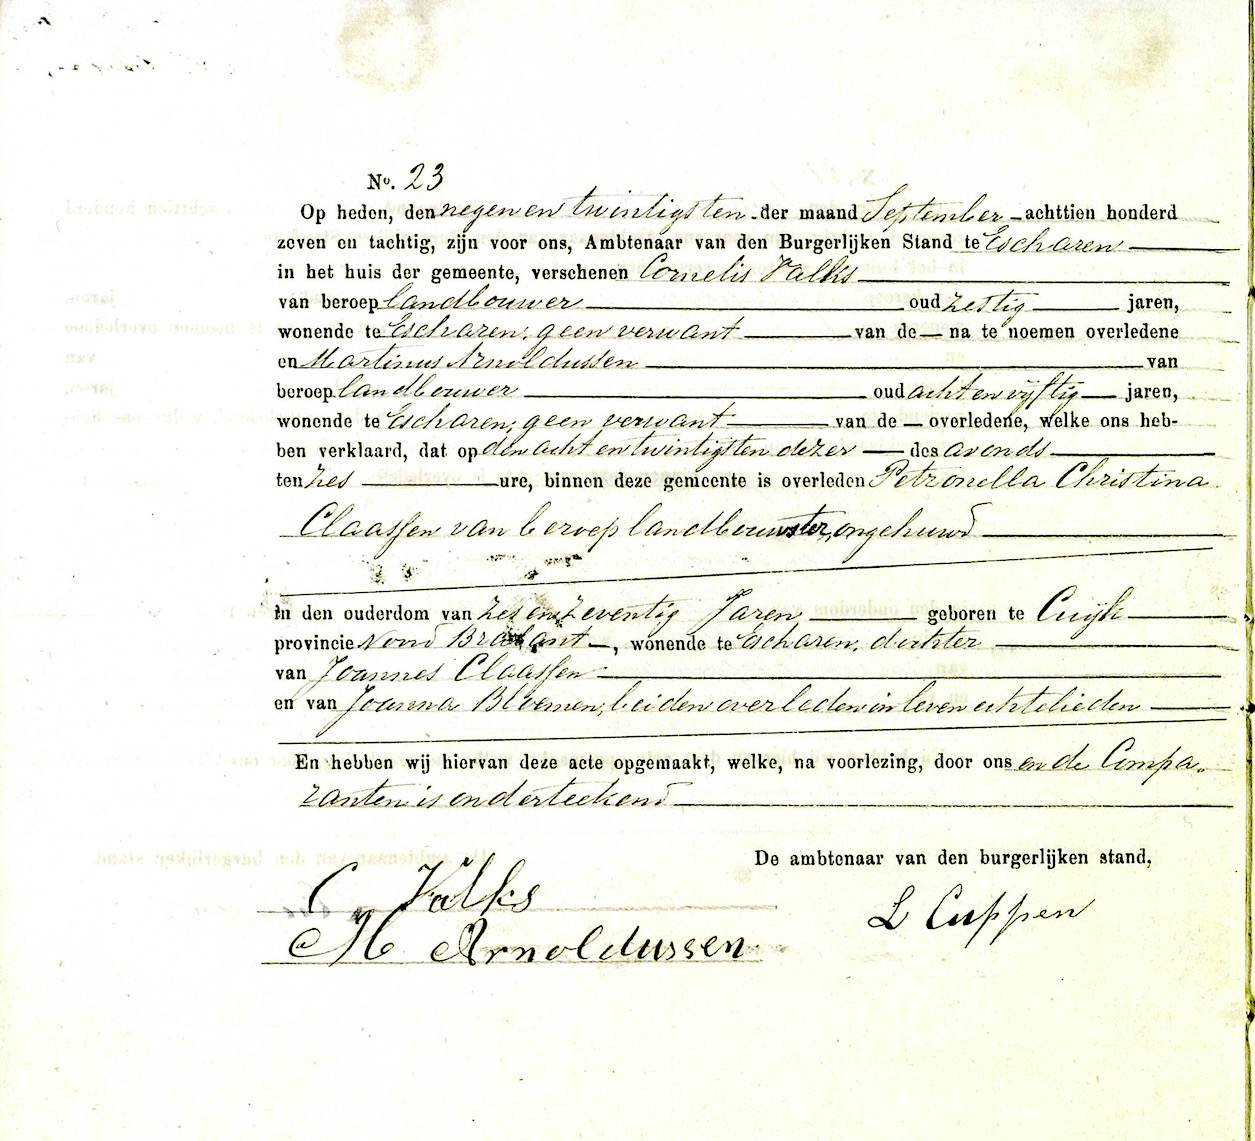 No. 23
Op heden, den negen en twintigsten der maand September achttien honderd
zeven en tachtig, zijn voor ons, Ambtenaar van den Burgerlijken Stand te Escharen
in het huis der gemeente, verschenen Cornelis Valks
van beroep landbouwer oud zestig jaren,
wonende te Escharen, geen verwant van de na te noemen overledene
en Martinus Arnoldussen van
beroep landbouwer oud acht en vijftig jaren,
wonende te Escharen, geen verwant van de overledene, welke ons heb-
ben verklaard, dat op den acht en twintigsten dezer des avonds
ten zes ure, binnen deze gemeente is overleden Petronella Christina
Claassen van beroep landbouwster, ongehuwd
in den ouderdom van zes en zeventig Jaren, geboren te Cuijk
provincie Noord Brabant, wonende te Escharen, dochter
van Joannes Claassen
en van Joanna Bloemen, beiden overleden in leven echtelieden
En hebben wij hiervan deze acte opgemaakt, welke, na voorlezing, door ons en de Compa„
ranten is onderteekend
De ambtenaar van den burgerlijken stand,
C Valks
L Cuppen
M Arnoldussen